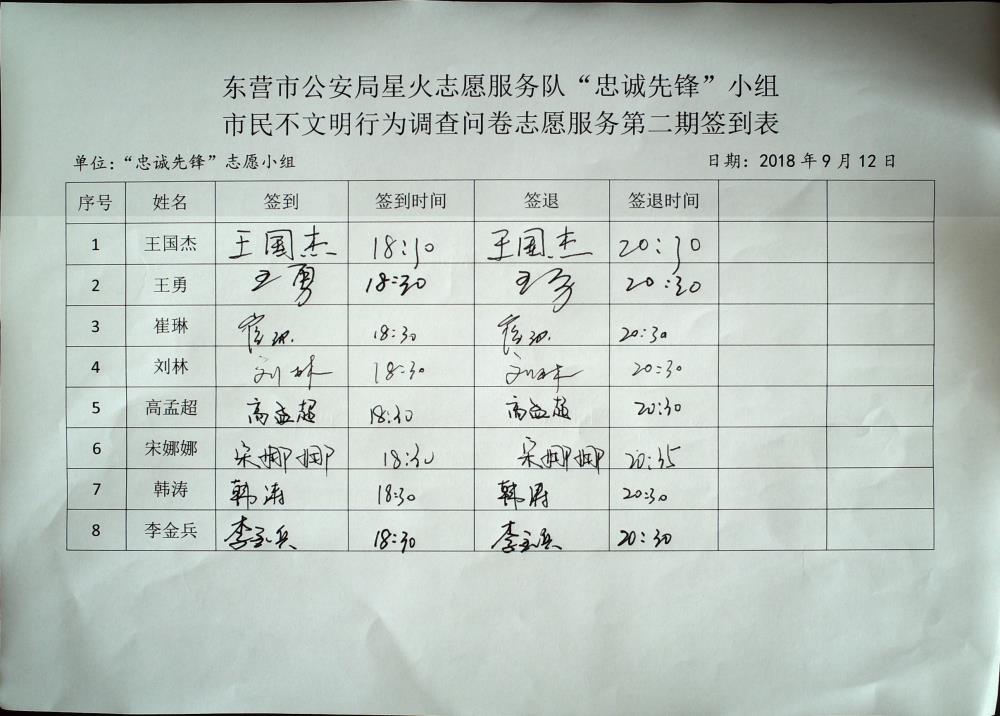 东营市公安局星火志愿服务队“忠诚先锋”小组
市民不文明行为调查问卷志愿服务第二期签到表
单位：“忠诚先锋”志愿小组 日期：2018年9月12日
序号 姓名 签到 签到时间 签退 签退时间
1 王国杰 王国杰 18:30 王国杰 20:30
2 王勇 王勇 18:30 王勇 20:30
3 崔琳 崔琳 18:30 崔琳 20:30
4 刘林 刘林 18:30 刘林 20:30
5 高孟超 高孟超 18:30 高孟超 20:30
6 宋娜娜 宋娜娜 18:30 宋娜娜 20:35
7 韩涛 韩涛 18:30 韩涛 20:30
8 李金兵 李金兵 18:30 李金兵 20:30